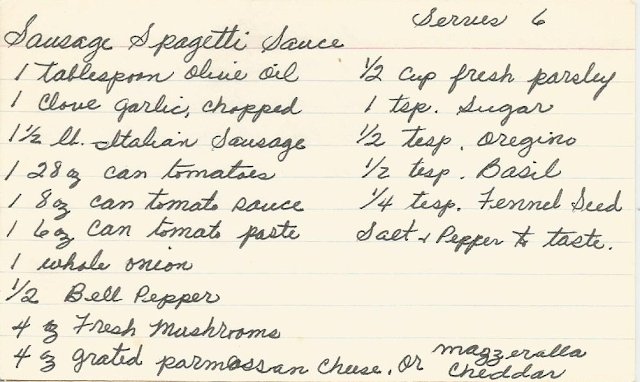 Serves 6
Sausage Spagetti Sauce
1 tablespoon olive oil
1 clove garlic, chopped
1 1/2 lb. Italian Sausage
1 28 oz can tomatoes
1 8 oz can tomato sauce
1 6 oz can tomato paste
1 whole onion
1/2 Bell Pepper
4 oz Fresh Mushrooms
4 oz grated parmassan cheese, or mazzeralla
cheddar
1/2 cup fresh parsley
1 tsp. Sugar
1/2 tesp. Oregino
1/2 tesp. Basil
1/4 tesp. Fennel Seed
Salt & Pepper to taste.